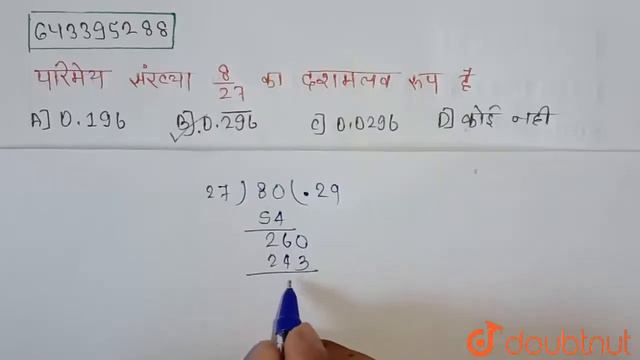 643395288
परिमेय संख्या 8/27 का दशमलव रूप है
A] 0.196 B] 0.296̅ C] 0.0296 D] कोई नही
27 ) 80 ( .29
54
260
243
doubtnut